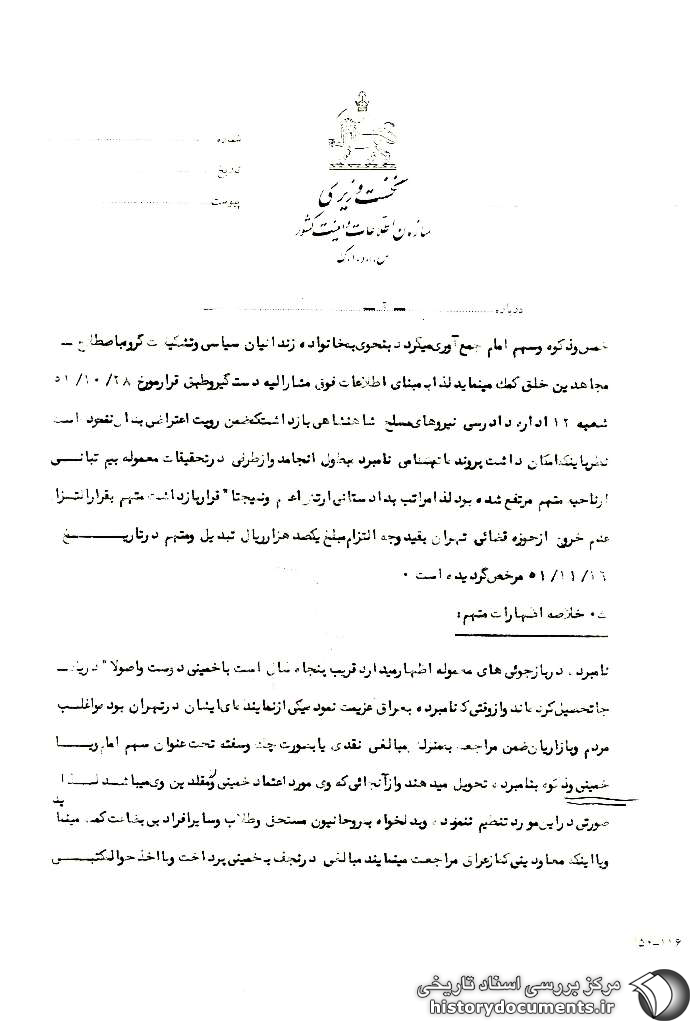 شماره
تاریخ
پیوست
نخست وزیری
سازمان اطلاعات و امنیت کشور
س.ا.و.ا.ک
درباره
خمس وذکوه وسهم امام جمع آوری میگردد بنحوی بخانواده زندانیان سیاسی وتشکیلات گروه باصطلاح
مجاهدین خلق کمک مینماید لذا بر مبنای اطلاعات فوق مشارالیه دستگیر وطبق قرار مورخ ۵۱/۱۰/۲۸
شعبه ۱۲ اداره دادرسی نیروهای مسلح شاهنشاهی بازداشت که ضمن رویت اعتراضی بدان ننموده است
نظر باینکه امکان داشت پرونده اتهامی نامبرده بطول انجامد وازطرفی درتحقیقات معموله بیم تبانی
ازناحیه متهم مرتفع شده بود لذا مراتب بدادستانی ارتش اعلام ونتیجتا" قرار بازداشت متهم بقرار التزام
عدم خروج ازحوزه قضائی تهران بقید وجه التزام مبلغ یکصد هزار ریال تبدیل ومتهم درتاریخ
۵۱/۱۱/۱۶ مرخص گردیده است ۰
ث۰ خلاصه اظهارات متهم:
نامبرده دربازجوئی های معموله اظهار میدارد قریب پنجاه سال است با خمینی دوست واصولا" دریک
جا تحصیل کرده اند وازوقتی که نامبرده بعراق عزیمت نموده یکی ازنمایندهای ایشان درتهران بوده واغلب
مردم وبازاریان ضمن مراجعه بمنزل مبالغی نقدی یا بصورت چک وسفته تحت عنوان سهم امام ویا
خمس وذکوه بنامبرده تحویل میدهند وازآنجائی که وی مورد اعتماد خمینی ومقلدین وی میباشد لذا
صورتی دراین مورد تنظیم ننموده وبدلخواه به روحانیون مستحق وطلاب وسایر افراد بی بضاعت کمک مینماید
ویا اینکه معاودینی که ازعراق مراجعت مینمایند مبالغی درنجف به خمینی پرداخت وبا اخذ حواله کتبی
۵۰-۱۱۶
مرکز بررسی اسناد تاریخی
historydocuments.ir